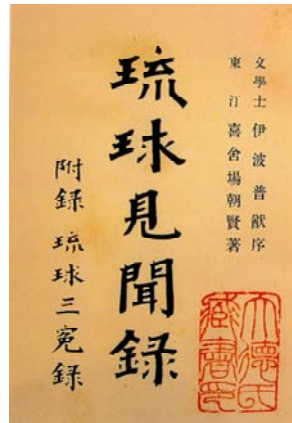 文學士 伊波普猷序
東汀 喜舍場朝賢著
琉球見聞錄
附錄 琉球三冤錄
藏書印